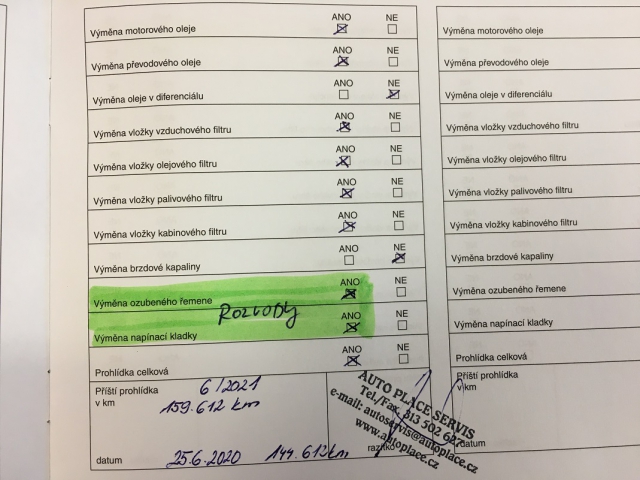 ANO NE
Výměna motorového oleje
ANO NE
Výměna převodového oleje
ANO NE
Výměna oleje v diferenciálu
ANO NE
Výměna vložky vzduchového filtru
ANO NE
Výměna vložky olejového filtru
ANO NE
Výměna vložky palivového filtru
ANO NE
Výměna vložky kabinového filtru
ANO NE
Výměna brzdové kapaliny
ANO NE
Výměna ozubeného řemene
ROZVODY
ANO NE
Výměna napínací kladky
ANO NE
Prohlídka celková
Příští prohlídka 6/2021
v km 159.612 km
datum 25.6.2020 144.612km
AUTO PLACE SERVIS
Tel./Fax. 313 502 627
e-mail: autoservis@autoplace.cz
www.autoplace.cz
Výměna motorového oleje
Výměna převodového oleje
Výměna oleje v diferenciálu
Výměna vložky vzduchového filtru
Výměna vložky olejového filtru
Výměna vložky palivového filtru
Výměna vložky kabinového filtru
Výměna brzdové kapaliny
Výměna ozubeného řemene
Výměna napínací kladky
Prohlídka celková
Příští prohlídka
v km
datum